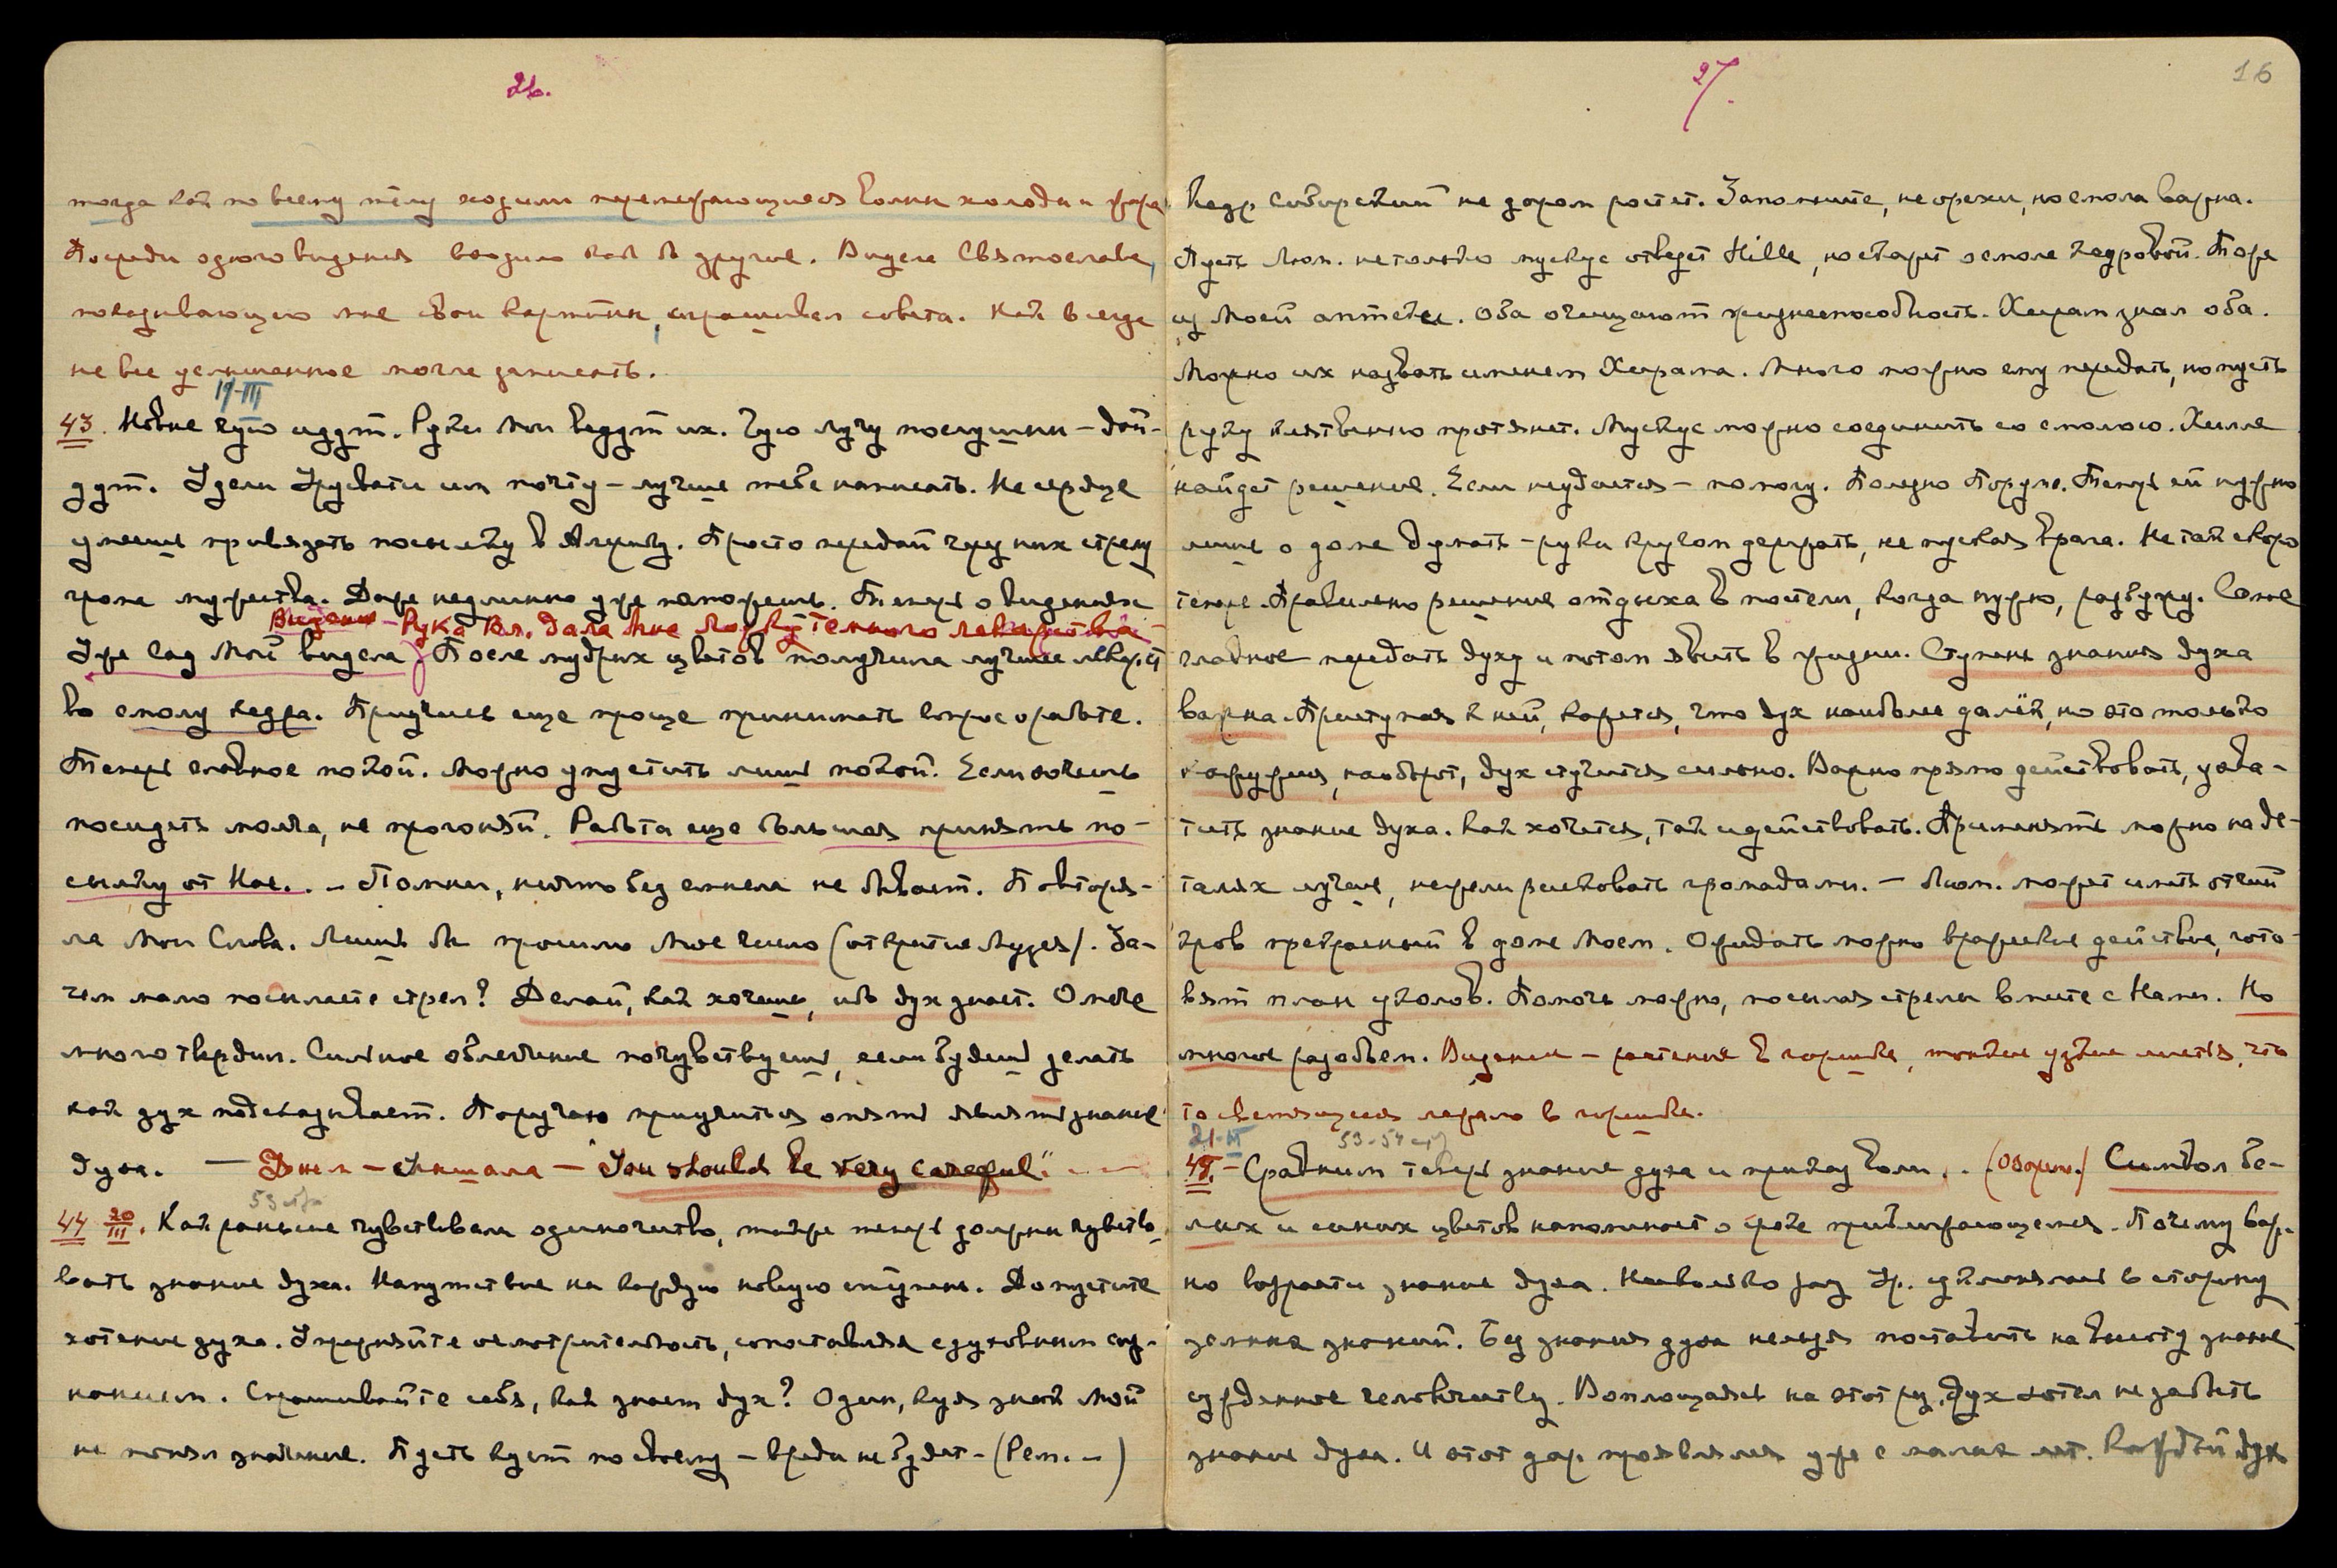 26.
тогда как по всему телу ходили перемежающиеся волны холода и жара
Посреди одного видения входило как в другое. Видела Святослава,
показывающего мне свои картины, спрашивал совета. Как всегда
не все услышанное могла записать.
19-III
43. Новые чую идут. Руки Мои ведут их. Чую лучу послушны – дой-
дут. Удели Урусвати им почту – лучше тебе написать. Не сердце
умеешь привязать посылку в Америку. Просто передай через них стрелу
грома мужества. Даже недлинно уже поможешь. Теперь о видениях
Видение – Рука Вл. дала мне ложку темного лекарства –
Уже Сад Мой видела. После мудрых цветов получила лучшее лекарст
во смолу кедра. Приучись еще проще принимать вопрос о работе.
Теперь главное покой. Можно упустить лишь покой. Если хочешь
посидеть молча, не прогоняй. Работа еще большая принять по-
сылку от Нас. . – Помни, ничто без смысла не бывает. Повторя-
ла Мои Слова. Лишь бы прошло Мое число (открытие Музея). За-
чем мало посылаете стрел? Делай, как хочешь, ибо дух знает. О мече
много твердим. Сильное облегчение почувствуешь, если будешь делать
как дух подсказывает. Поручаю приучиться опять являть знание
духа. — Днем – слышала – "You should be very careful" - - —
53 стр
44 20/III. Как раньше чувствовали одиночество, также теперь должны чувство-
вать знание духа. Напутствие на каждую новую ступень. Допустите
хотение духа. Упражняйте осмотрительность, сопоставляя с духовным соз-
нанием. Спрашивайте себя, как знает дух? Один, куя знак Мой
не понял значение. Пусть кует по своему – вреда не будет – (Рем. –)
27.
16
Кедр Сибирский не даром ростет. Запомните, не орехи, но смола важна.
Пусть Люм. не только мускус отвезет Hille, но скажет о смоле кедровой. Тоже
из Моей аптеки. Оба очищают жизнеспособность. Хирам знал оба.
Можно их назвать именем Хирама. Много можно ему передать, но пусть
руку клятвенно протянет. Мускус можно соединить со смолою. Хилле
найдет решение. Если неудается – помогу. Полезно Поруме. Теперь ей нужно
лишь о доме думать – руки кругом держать, не пуская врага. Не так скоро
теперь. Правильно решение отдыха в постели, когда нужно, разбужу. Самое
главное передать духу и потом явить в жизни. Ступень знания духа
важна. Приступая к ней, кажется, что дух наиболее далёк, но это только
кажущееся, наоборот, дух стучится сильно. Важно прямо действовать, узда-
тить знание духа. Как хочется, так и действовать. Применять можно на де-
талях лучше, нежели рисковать громадами. – Люм. может иметь отчий
кров прекрасный в доме Моем. Ожидать можно вражеское действие, гото-
вят план уколов. Помочь можно, посылая стрелы вместе с Нами. Но
многое разобьем. Видение – растение в горшке, тонкие узкие листья, что-
то светящееся лежало в горшке.
21-III 53-54 стр
45. – Сравним теперь знание духа и приказ воли. . (Озарен.) Символ бе-
лых и синих цветов напоминает о сроке приближающемся. Почему важ-
но возрасти знание духа. Насколько раз Ур. уклонялась в сторону
земных знаний. Без знания духа нельзя поставить на высоту знание
сужденное человечеству. Воплощаясь на этот раз, дух хотел не забыть
знание духа. И этот дар проявлялся уже с малых лет. Каждый дух